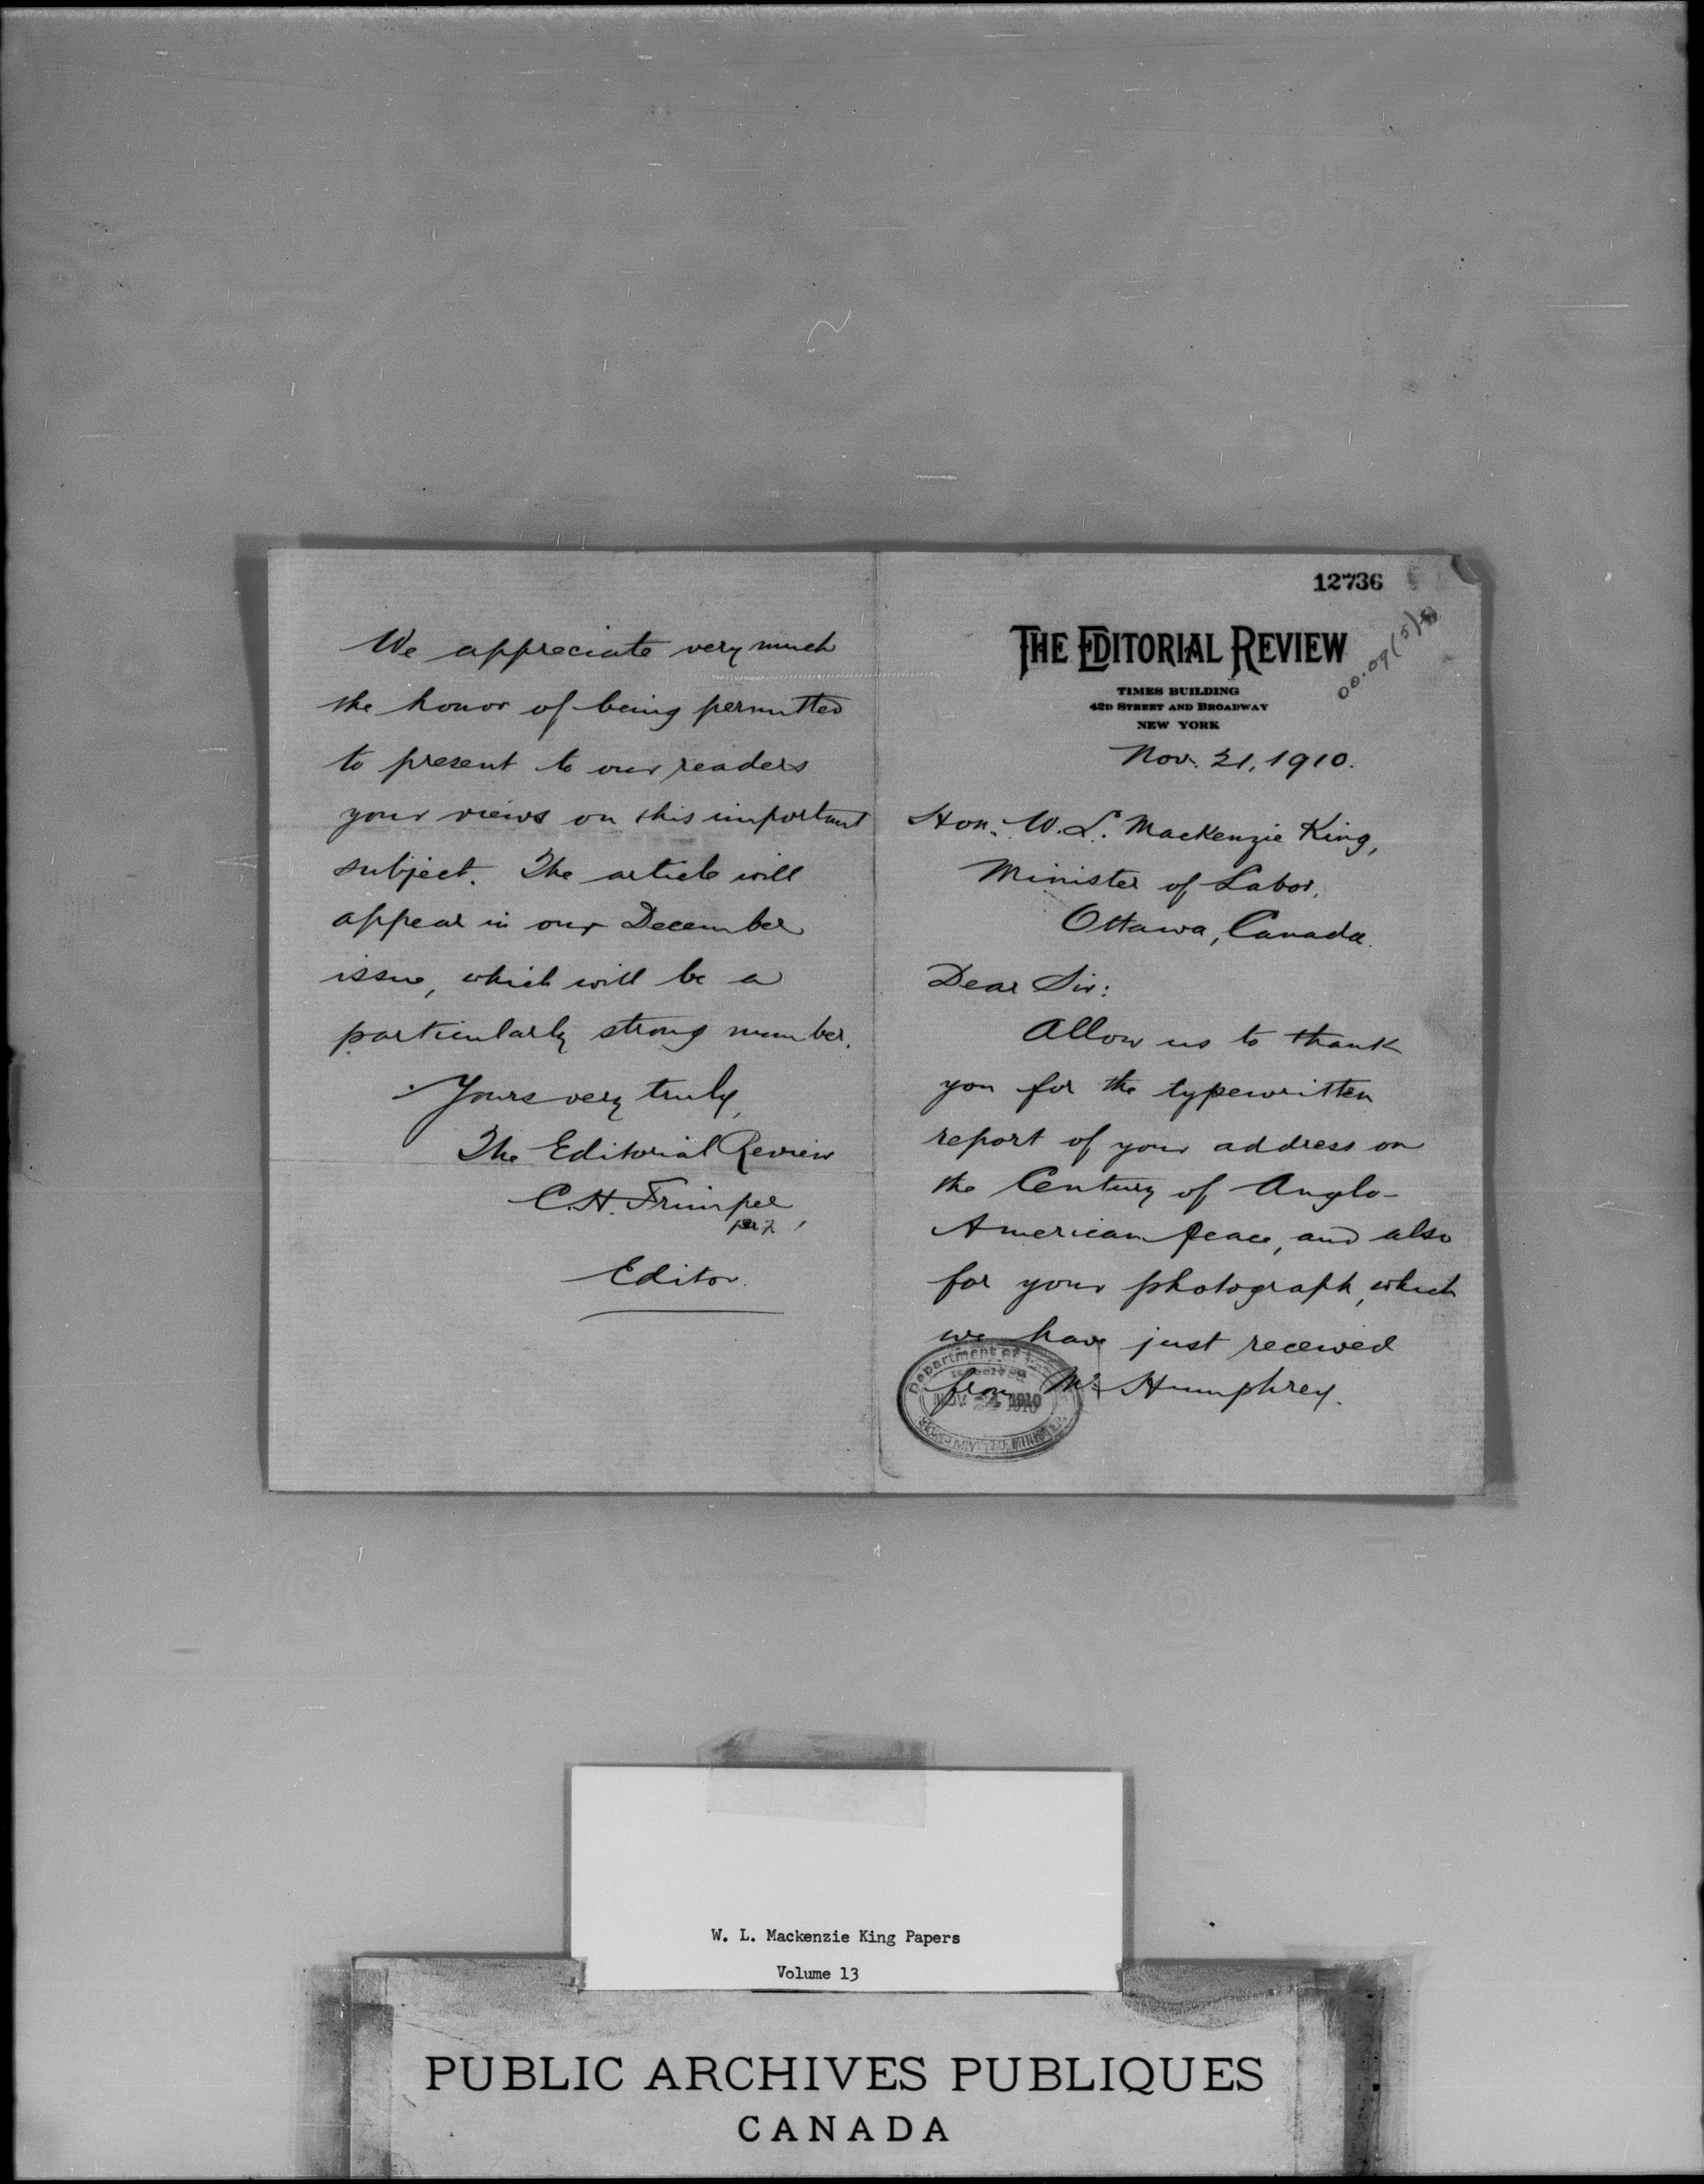 12736
THE EDITORIAL REVIEW
TIMES BUILDING
42D STREET AND BROADWAY
NEW YORK
Nov. 21, 1910.
Hon. W. L. Mackenzie King,
Minister of Labor,
Ottawa, Canada.
Dear Sir:
Allow us to thank
you for the typewritten
report of your address on
the Century of Anglo-
American Peace, and also
for your photograph, which
we have just received
from Mr Humphrey.
Department of
Received
NOV 1910
We appreciate very much
the honor of being permitted
to present to our readers
your views on this important
subject. The article will
appear in our December
issue, which will be a
particularly strong number.
Yours very truly,
The Editorial Review
C. H.
per
Editor.
W. L. Mackenzie King Papers
Volume 13
PUBLIC ARCHIVES PUBLIQUES
CANADA